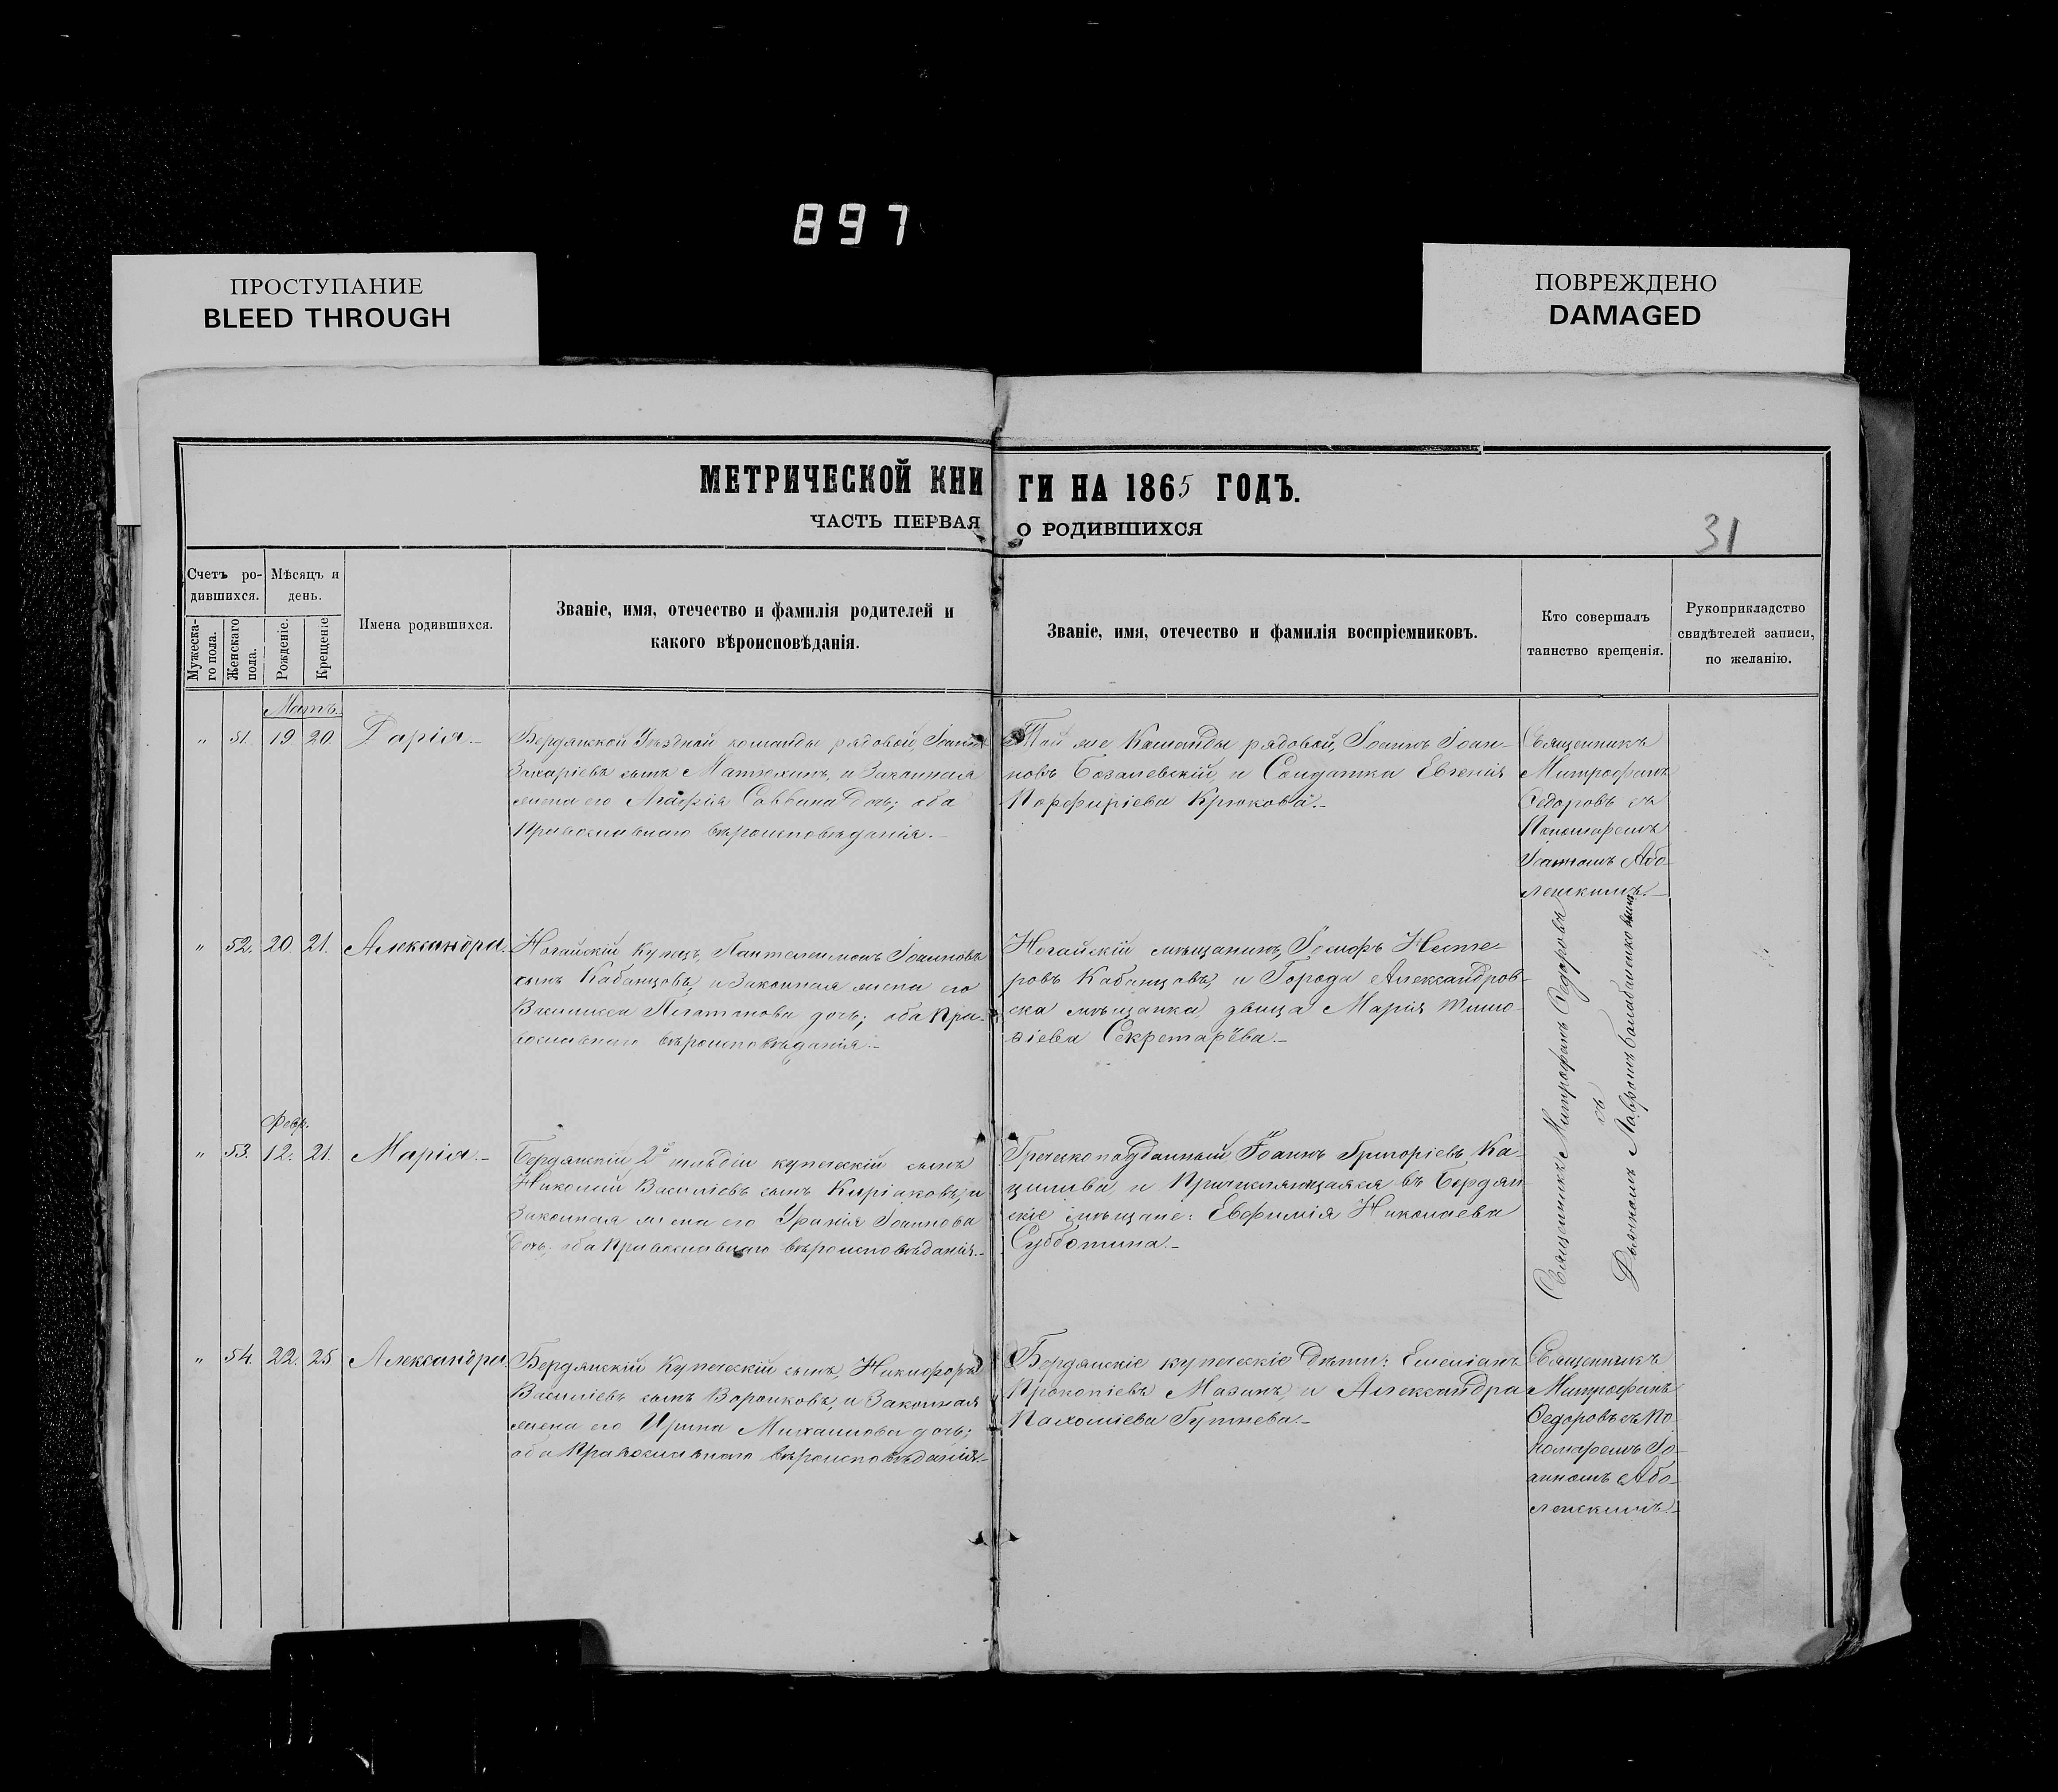 897
ПРОСТУПАНИЕ
BLEED THROUGH
ПОВРЕЖДЕНО
DAMAGED
МЕТРИЧЕСКОЙ КНИ ГИ НА 1865 ГОДЪ.
ЧАСТЬ ПЕРВАЯ О РОДИВШИХСЯ
31
Счетъ ро-
дившихся.
Мужеска-
го пола.
Женскаго
пола.
Мѣсяцъ и
день.
Рожденіе.
Крещеніе
Имена родившихся.
Званіе, имя, отечество и фамилія родителей и
какого вѣроисповѣданія.
Званіе, имя, отечество и фамилія воспріемниковъ.
Кто совершалъ
таинство крещенія.
Рукоприкладство
свидѣтелей записи,
по желанію.
„ 51. 19 20. Дарія.-
Бердянской Уѣздной команды рядовой, Іоаннъ
Захаріевъ сынъ Матюхинъ, и Законная
жена его Агафія Саввина дочь; оба
Православнаго вѣроисповѣданія.-
Той же Команды рядовой, Іоаннъ Іоан-
новъ и Солдатка Евгенія
Порфиріева Крюкова.-
Священникъ
Митрофанъ
Ѳедоровъ съ
Пономаремъ
Іоанномъ Або-
ленскимъ.-
„ 52. 20. 21. Александра.
Ногайскій Купецъ, Пантелеимонъ Іоанновъ
сынъ Кабанцовъ, и Законная жена его
Василисса дочь; оба Пра-
вославнаго вѣроисповѣданія.-
Ногайскій мѣщанинъ, Іосифъ
ровъ Кабанцовъ, и Города Александров-
ска мѣщанка двица Марія Тимо-
ѳіева Секретарёва.-
Священникъ Митрофанъ Ѳедоровъ
съ
Дьячкомъ
Февр.
„ 53. 12. 21. Марія.-
Бердянскій 2й гильдіи купеческій сынъ
Николай Василіевъ сынъ Киріаковъ, и
Законная жена его Уранія Іоаннова
дочь; оба Православнаго вѣроисповѣданія.-
Греческоподданный Іоаннъ Григоріевъ Ка-
и Причисляющаяся въ Бердян-
скіе мѣщане: Евфимія Николаева
Субботина.-
„ 54. 22. 25 Александра
Бердянскій Купеческій сынъ, Никифоръ
Василіевъ сынъ Воронковъ, и Законная
жена его Ирина Михаилова дочь;
оба Православнаго вѣроисповѣданія.-
Бердянскіе купеческіе дѣти: Емеліанъ
Прокопіевъ Мазинъ, и Александра
Пахоміева
Священникъ
Митрофанъ
Ѳедоровъ съ По-
номаремъ Іо-
анномъ Або-
ленскимъ.-